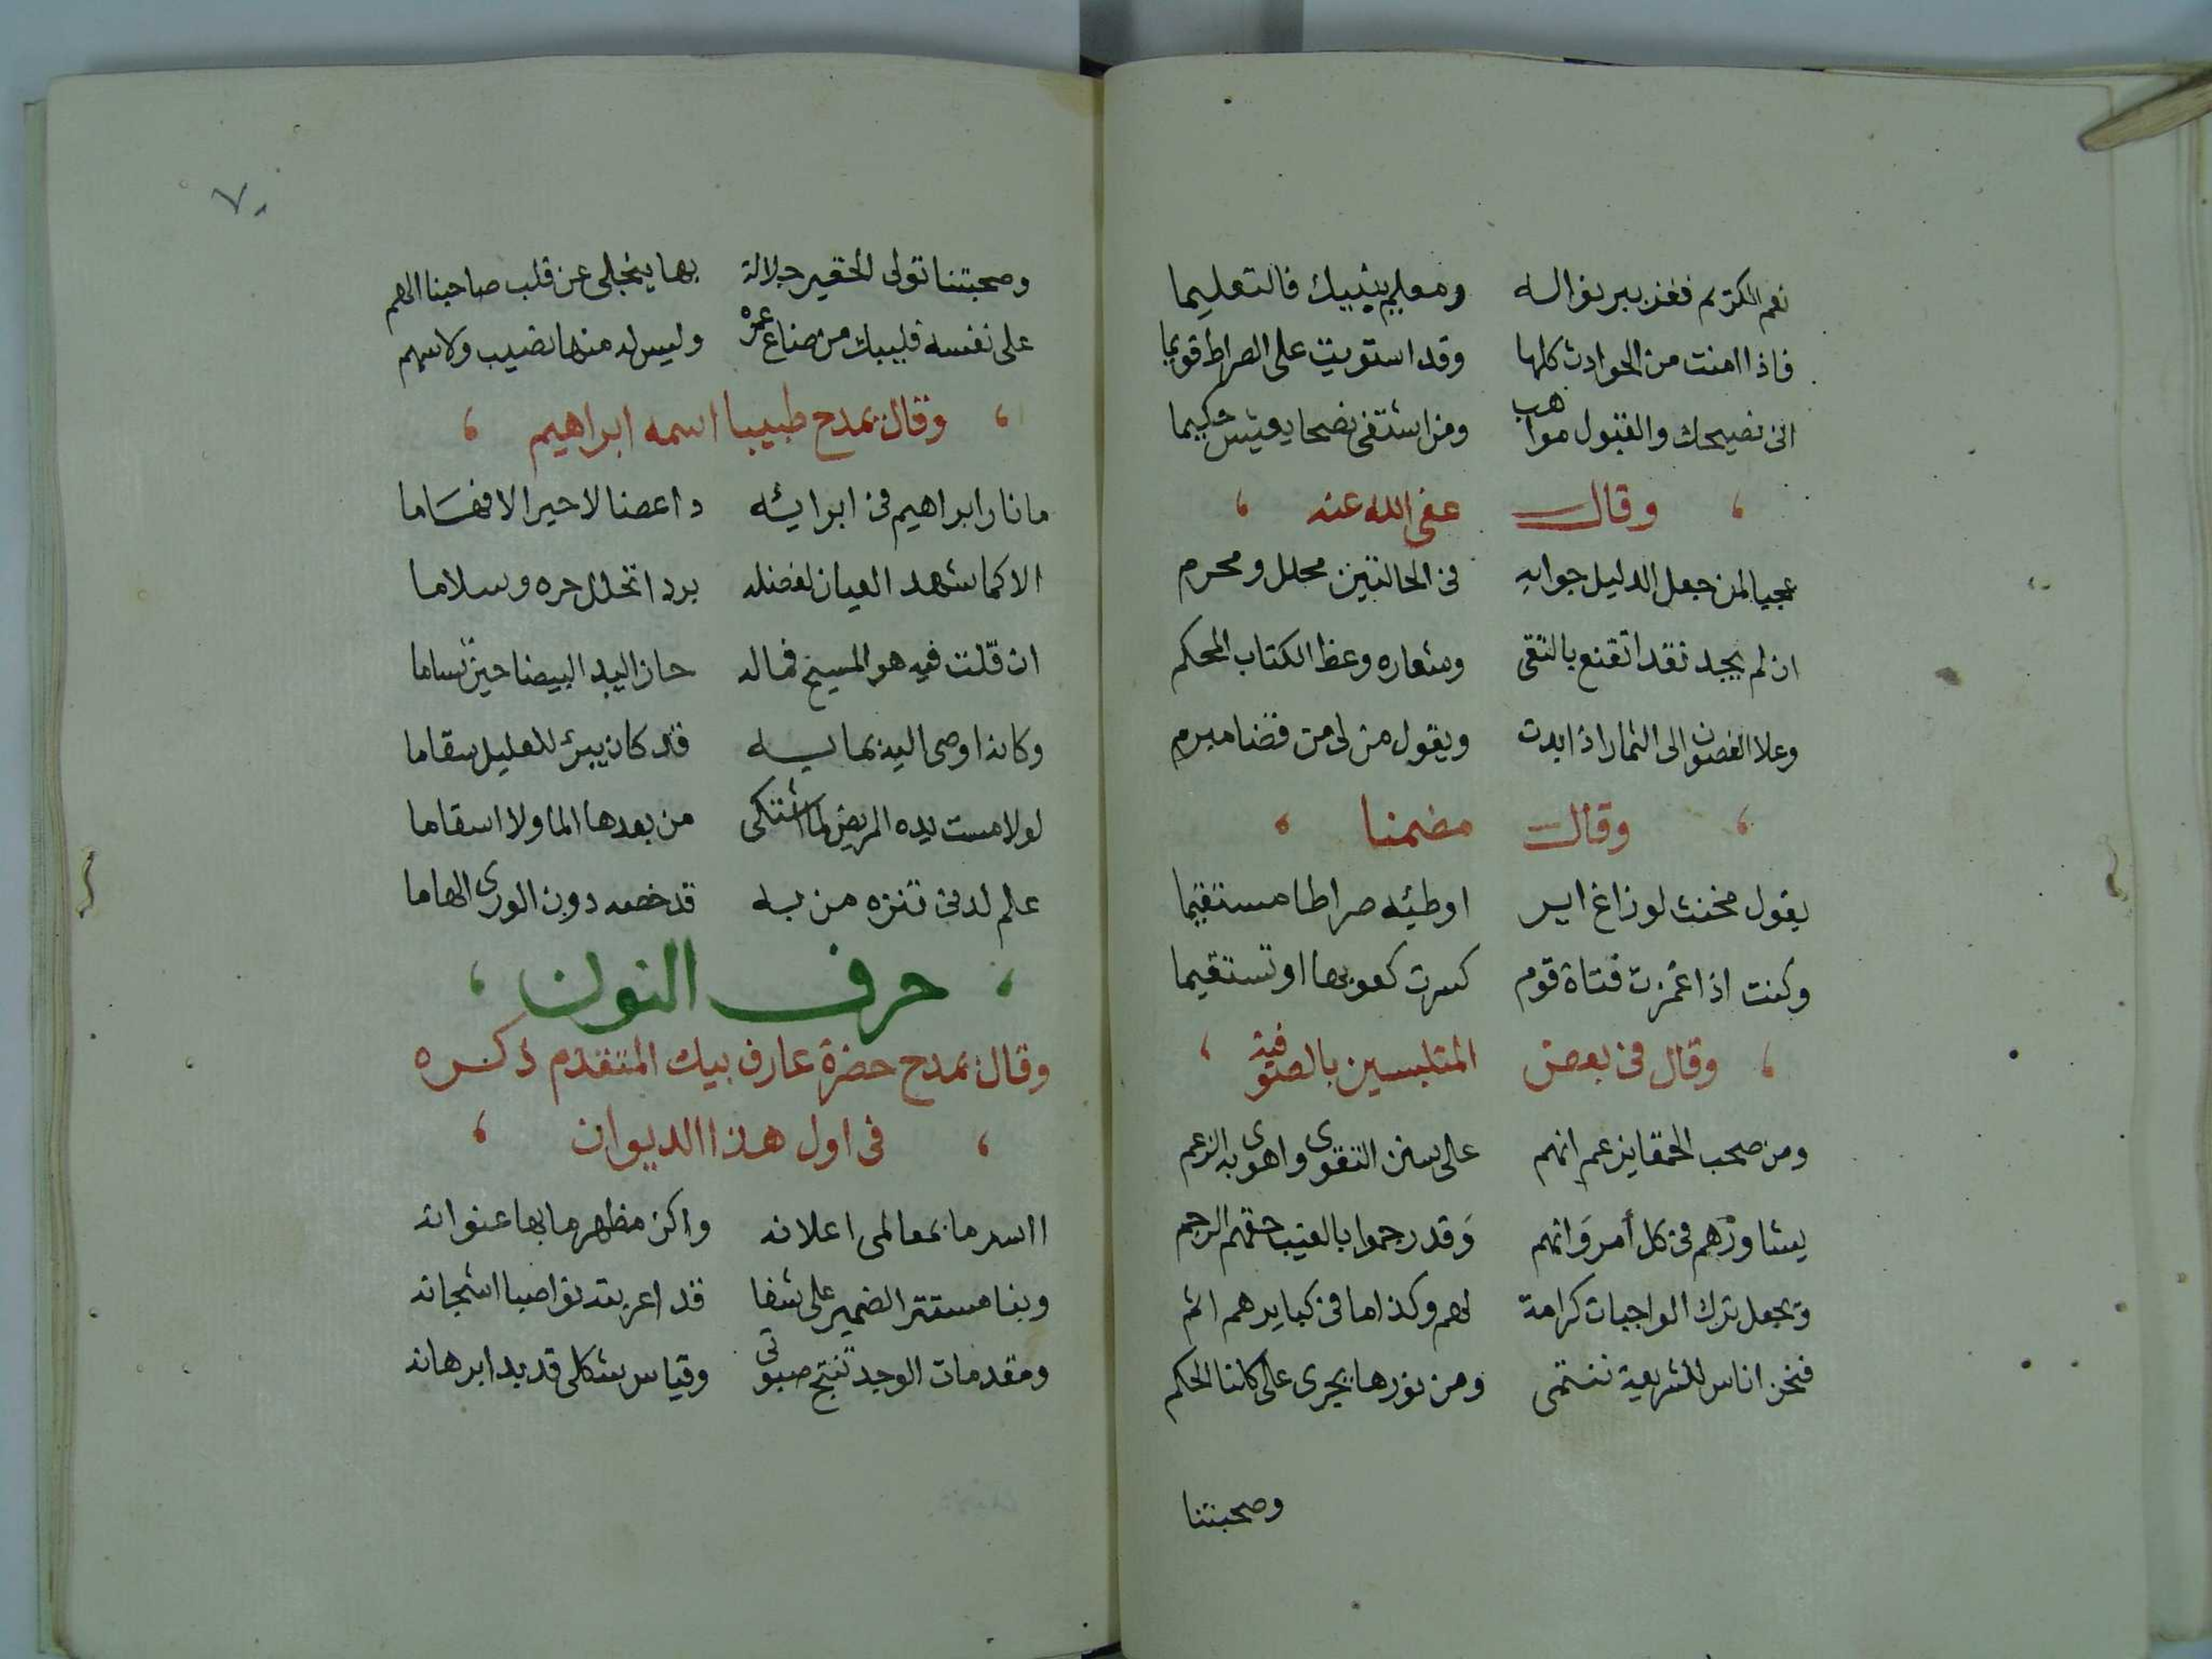 نعم الكريم ففز ببر نواله ومعلم ينبيك فالتعليما
فاذا امنت من الحوادث كلها وقد استويت على الصراط قويما
انى نصيحك والقبول مواهب ومن اشتفى نصحا يعيش حكيما
وقال عفى الله عنه
عجبا لمن جعل الدليل جوابه فى الحالتين محلل ومحرم
ان لم يجد نقدا تقنع بالتقى وشعاره وعظ الكتاب المحكم
وعلا الغصون الى الثمار اذا بدت ويقول من لى من قضا مبرم
وقال مضمنا
يقول مخنث لو زاغ اير اوطيه صراطا مستقيما
وكنت اذا غمزت قناة قوم كسرت كعوبها او تستقيما
وقال فى بعض المتلبسين بالصوفية
ومن صحب الحمقا يزعم انهم على سنن التقوى واهوى به الزعم
يشاورهم فى كل أمر وَانهم وَقد رجموا بالغيب حقهم الرجم
وتجعل ترك الواجبات كرامة لهم وكذا ما فى كبايرهم اثم
فنحن اناس للشريعة ننتمى ومن نورها يجرى على كلنا الحكم
وصحبتنا
٧٠
وصحبتنا تولى الحقير جلالة بها ينجلى عن قلب صاحبنا الهم
على نفسه فليبك من ضاع عمره وليس له منها نصيب ولا سهم
وقال يمدح طبيبا اسمه ابراهيم
ما نار ابراهيم فى ابرايه داعضنا لا حير الافهَاما
الا كما شهد العيان لفضله بردا تحلل حره وسلاما
ان قلت فيه هو المسيح فماله حاز اليد البيضا حين تساما
وكانه اوصى اليه بما به قد كان يبرئ للعليل سقاما
لو لامست يده المريض لما اشتكى من بعدها الما ولا اسقاما
علم لدنى تنزه من به قد خصه دون الورى الهاما
حرف النون
وقال يمدح حضرة عارف بيك المتقدم ذكره
فى اول هذا الديوان
ااسر ما بمعالمى اعلانه واكن مظهر ما بها عنوانه
وبنا مستتر الضمير على شفا قد اعربته نواصبا اشجانه
ومقدمات الوجد تنتج صبوتى وقياس شكلى قد بدا برهانه